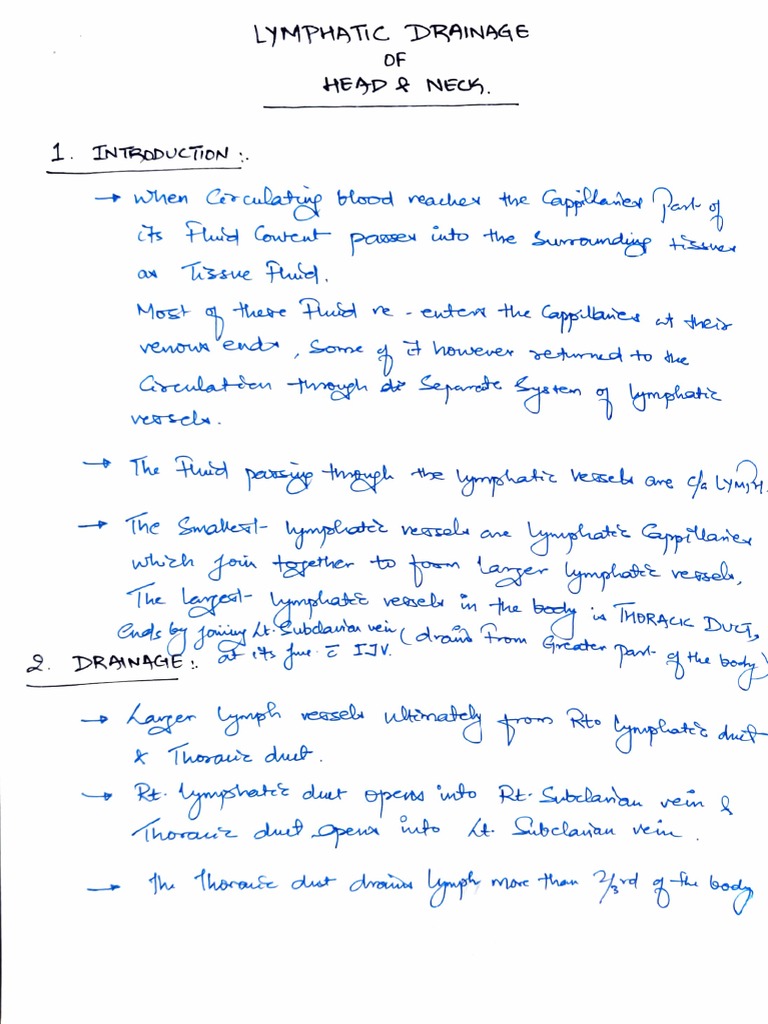 LYMPHATIC DRAINAGE
OF
HEAD & NECK.
1. INTRODUCTION :.
→ When Circulating blood reaches the Cappillaries Part of
its Fluid Content passes into the Surrounding tissues
as Tissue Fluid.
Most of these Fluid re-enters the Cappillaries at their
venous ends, Some of it however returned to the
Circulation through Separate System of lymphatic
vessels.
→ The Fluid passing through the lymphatic vessels are c/a LYMPH.
→ The Smallest lymphatic vessels are lymphatic Cappillaries
which join together to form Larger lymphatic vessels,
The Largest lymphatic vessels in the body is THORACIC DUCT,
Ends by joining Lt. Subclavian vein (drains From Greater part of the body)
at its Junc. c̄ IJV.
2. DRAINAGE :.
→ Larger lymph vessels ultimately from Rt. lymphatic duct
& Thoracic duct.
→ Rt. lymphatic duct opens into Rt. Subclavian vein &
Thoracic duct opens into Lt. Subclavian vein.
→ The Thoracic duct drains lymph more than 2/3rd of the body